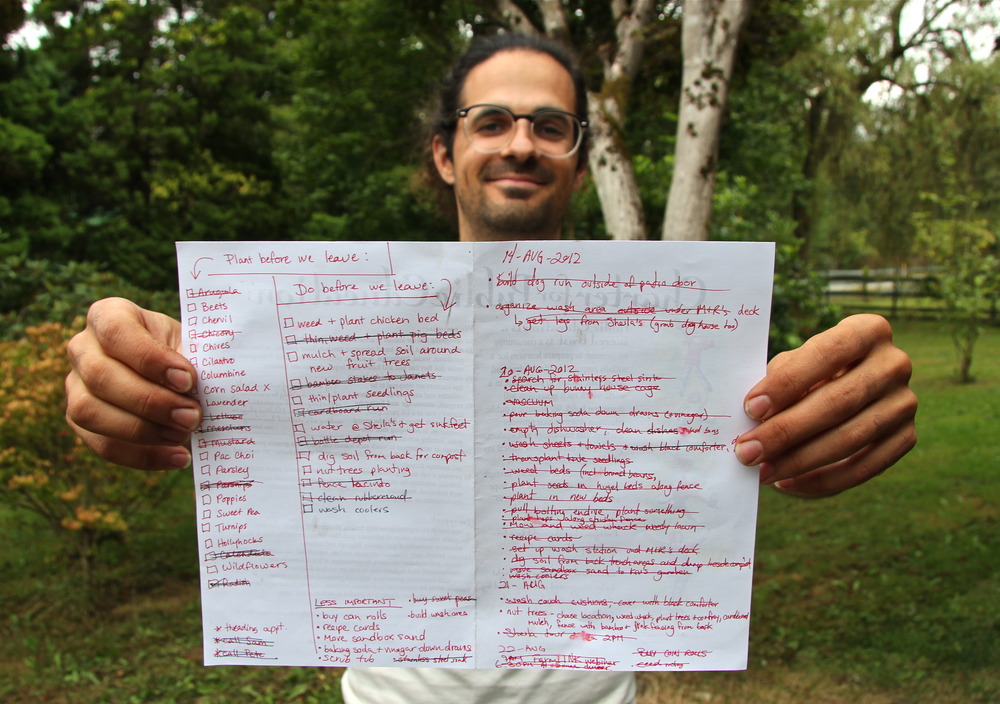 Plant before we leave:
Arugula
Beets
Chervil
Chicory
Chives
Cilantro
Columbine
Corn Salad x
Lavender
Lettuce
Mustard
Pac Choi
Parsley
Parsnips
Poppies
Sweet Pea
Turnips
Hollyhocks
Wildflowers
* threading appt.
* call Sam
* call Pete
Do before we leave:
weed + plant chicken bed
thin, weed + plant pig beds
mulch + spread soil around
new fruit trees
bamboo stakes to Janets
thin/plant seedlings
cardboard run
water @ Sheila's + get sink feet
bottle depot run
dig soil from back for compost
nut trees planting
fence
clean
wash coolers
LESS IMPORTANT
• buy can rolls
• recipe cards
• More sandbox sand
• baking soda + vinegar down drains
• scrub tub
• buy sweet peas
• build wash area
stainless steel sink
14-AUG-2012
• build dog run outside at patio door
• organize wash area outside under M+R's deck
↳ get lego from Sheila's (grab dog house too)
20-AUG-2012
• search for stainless steel sink
• clean up bunny house cage
• vaccuum
• pour baking soda down drains (+ vinegar)
• empty dishwasher, clean dishes
• wash sheets + towels + wash black comforter,
• transplant kale seedlings
• weed beds (incl. broad beans,
• plant seeds in hugel beds along fence
• plant in new beds
• pull bolting endive, plant something
• plant hops along
• Mow and weed whack lawn
• recipe cards
• set up wash station und M+R's deck
• dig soil from back trench and dump beside compost
• move sandbox sand to garden
• wash coolers
21-AUG
• wash couch cushions, cover with black comforter
• nut trees - choose location, weed whack, plant trees + comfrey, cardboard
mulch, fence with bamboo + fencing from back
• Sheila tour 2PM
22-AUG
webinar
dinner
• BUY COIN ROLLS
• seed notes